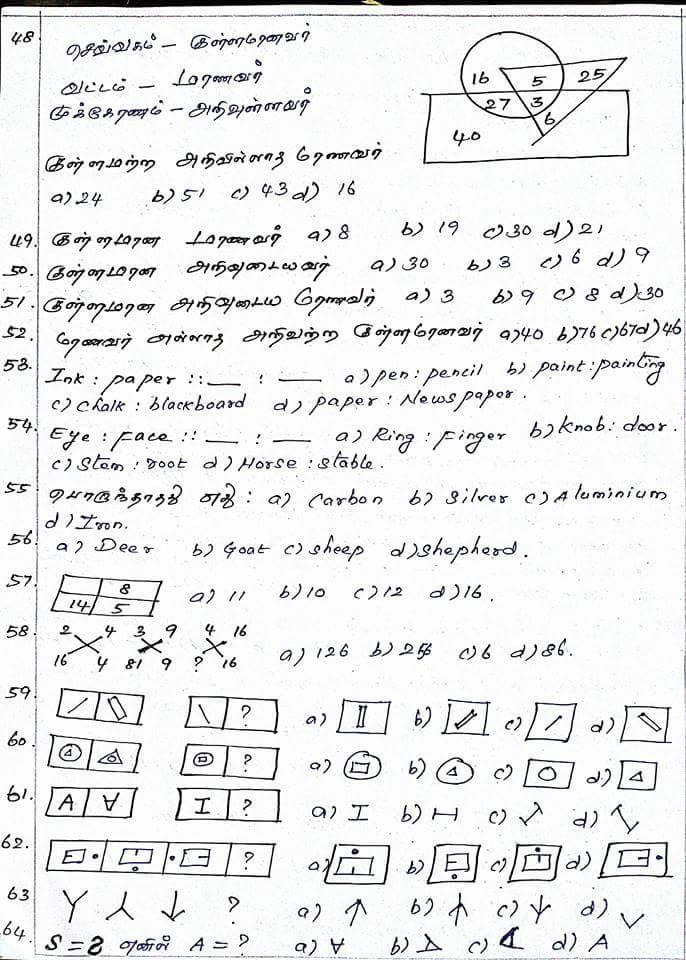 48 செவ்வகம் - குள்ளமானவர்
வட்டம் - மாணவர்
முக்கோணம் - அறிவுள்ளவர்
16 5 25
27 3
6
40
குள்ளமற்ற அறிவில்லாத மாணவர்
a) 24 b) 51 c) 43 d) 16
49. குள்ளமான மாணவர் a) 8 b) 19 c) 30 d) 21
50. குள்ளமான அறிவுடையவர் a) 30 b) 3 c) 6 d) 9
51. குள்ளமான அறிவுடைய மாணவர் a) 3 b) 9 c) 8 d) 30
52. மாணவர் அல்லாத அறிவற்ற குள்ளமானவர் a) 40 b) 76 c) 67 d) 46
53. Ink : paper :: __ : __ a) pen : pencil b) paint : painting
c) chalk : blackboard d) paper : Newspaper.
54. Eye : Face :: __ : __ a) Ring : Finger b) knob : door.
c) Stem : root d) Horse : stable.
55 பொருந்தாதது எது : a) Carbon b) Silver c) Aluminium
d) Iron.
56. a) Deer b) Goat c) sheep d) shepherd.
57. 8
14 5 a) 11 b) 10 c) 12 d) 16.
58. 2 4 3 9 4 16
16 4 81 9 ? 16 a) 126 b) 256 c) 6 d) 86.
59. ? a) b) c) d)
60. ? a) b) c) d)
61. A ∀ I ? a) I b) c) d)
62. ? a) b) c) d)
63 ? a) b) c) d)
64. S = 2 எனில் A = ? a) ∀ b) c) d) A